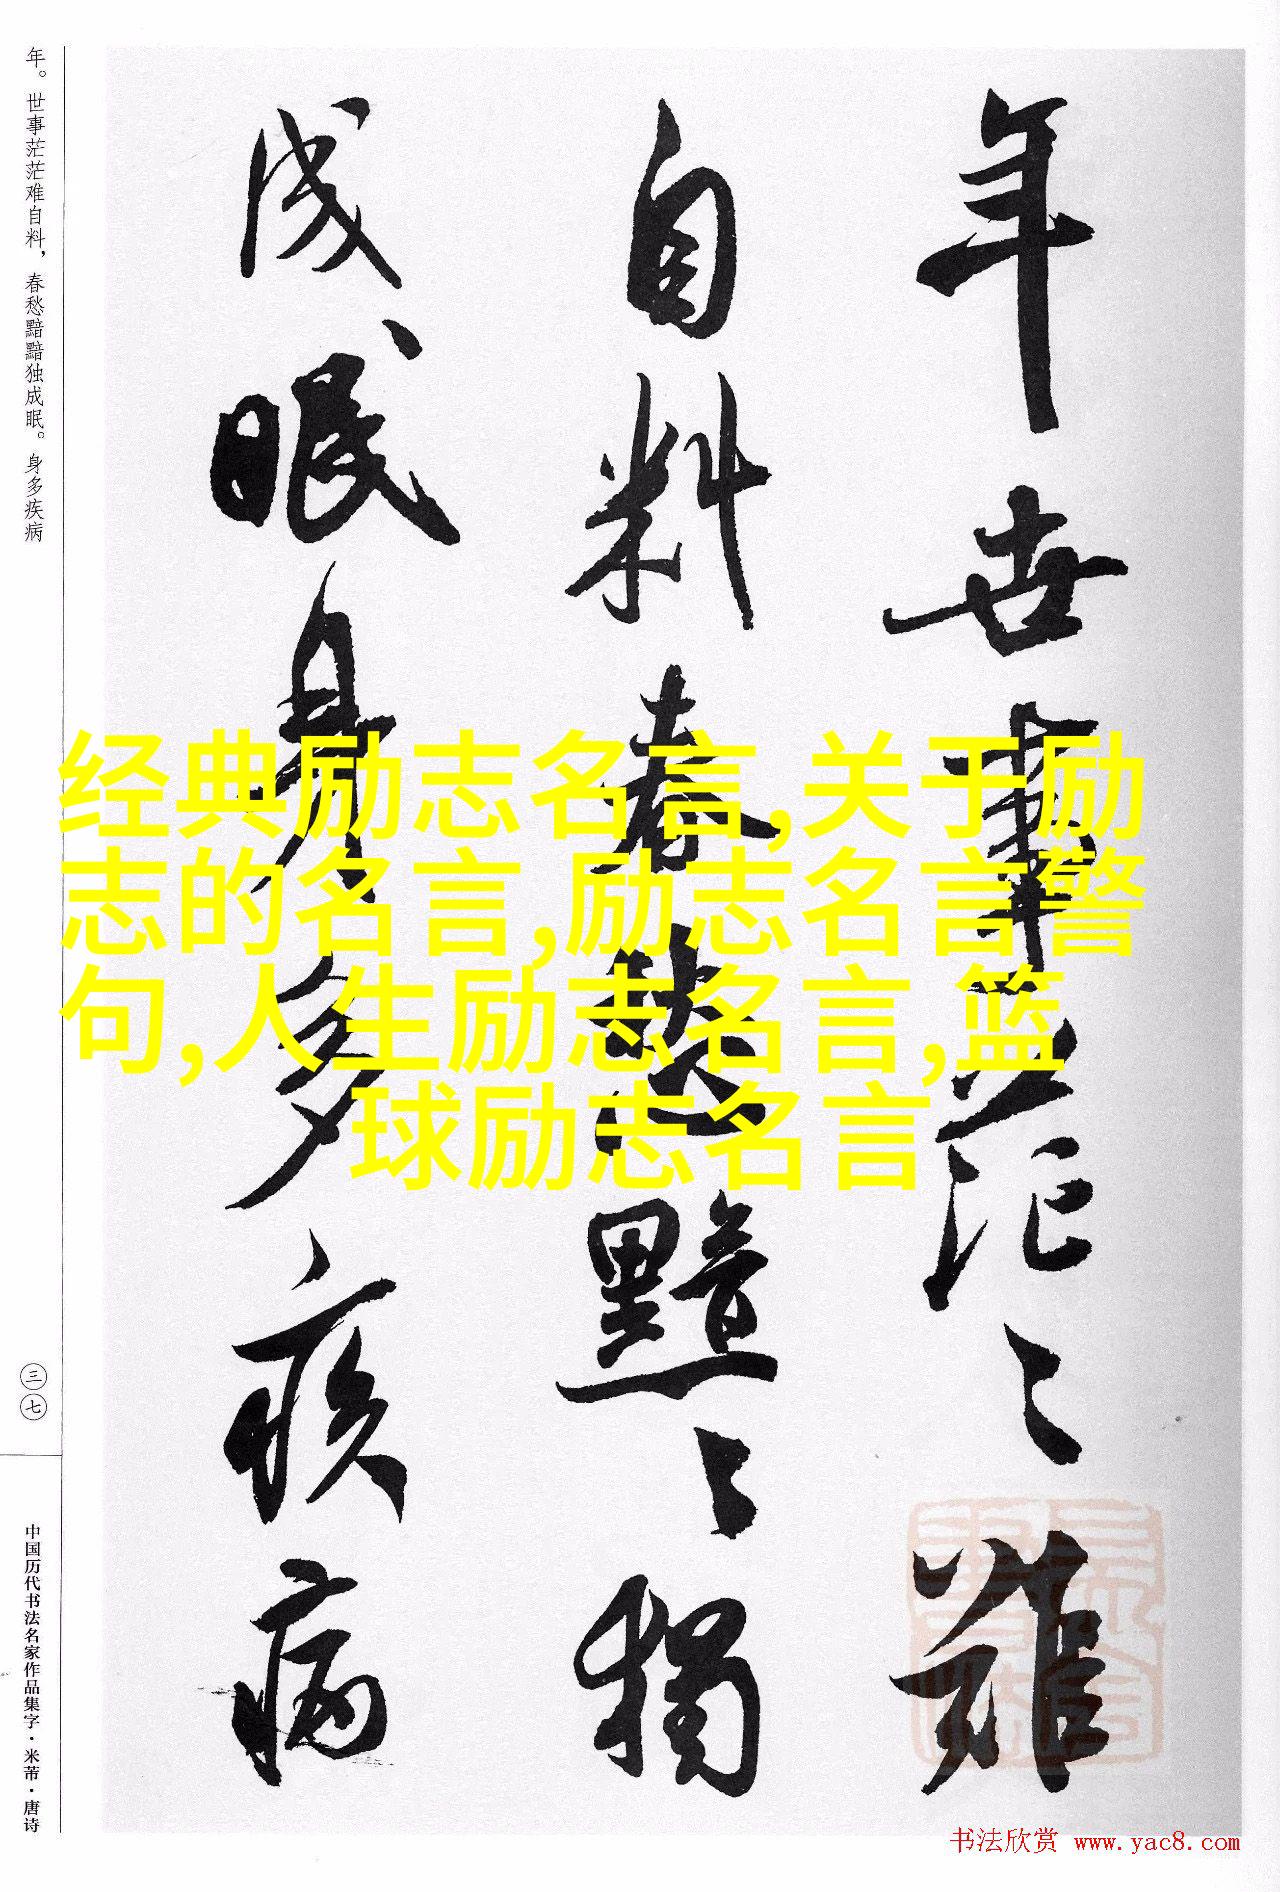 年世事茫〻難
自料春愁黯〻獨
成眠身多疾病
年。世事茫茫难自料，春愁黯黯独成眠。身多疾病
三七
中国历代书法名家作品集字·米芾·唐诗
经典励志名言,关于励
志的名言,励志名言警
句,人生励志名言,篮
球励志名言
书法欣赏 www.yac8.com